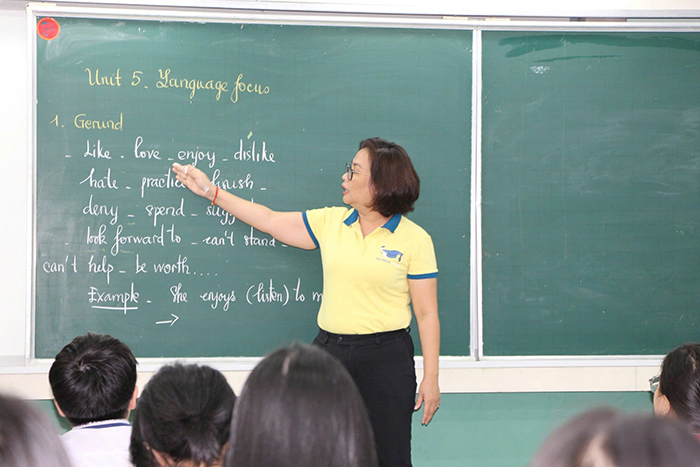 Unit 5. Language focus
1. Gerund
- Like - love - enjoy - dislike
hate - practice - finish -
deny - spend -
- look forward to - can't stand -
can't help - be worth....
Example - She enjoys (listen) to
→